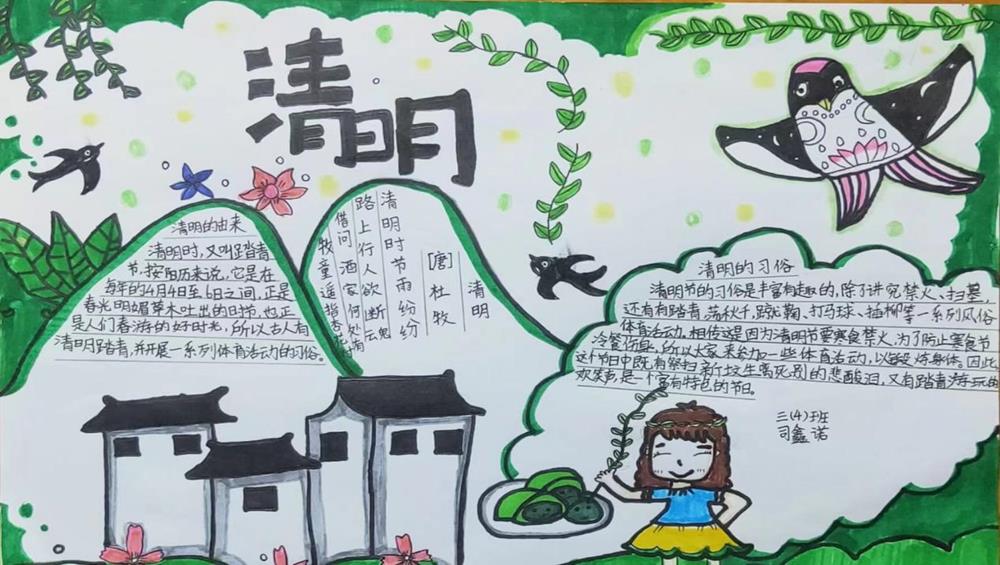 清明
清明的由来
清明时，又叫踏青
节，按阳历来说，它是在
每年的4月4日至6日之间，正是
春光明媚草木吐出的日节，也正
是人们春游的好时光，所以古人有
清明踏青，并开展一系列体育活动的习俗。
清明
[唐]杜牧
清明时节雨纷纷
路上行人欲断魂
借问酒家何处有
牧童遥指杏花村
清明的习俗
清明节的习俗是丰富有趣的，除了讲究禁火、扫墓，
还有有踏青、荡秋千、蹴鞠、打马球、插柳等一系列风俗
体育活动。相传这是因为清明节要寒食禁火，为了防止寒食节
冷餐伤身，所以大家来参加一些体育活动，以锻炼身体。因此
这个节日中既有祭扫新坟生离死别的悲酸泪，又有踏青游玩的
欢笑声，是一个富有特色的节日。
三(4)班
司鑫诺